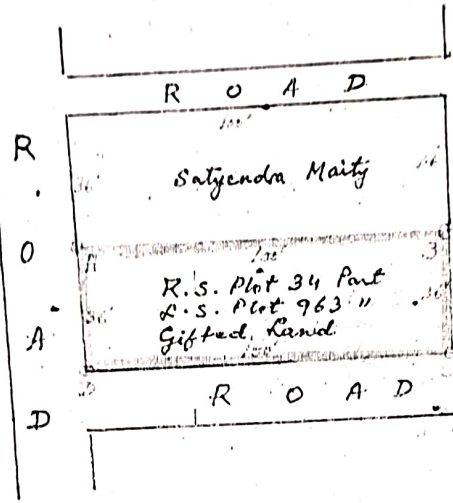 R O A D
R O A D
100'
Satyendra Maity
36'
A
100'
R.S. Plot 34 Part
L.S. Plot 963 "
Gifted Land
36'
36'
R O A D